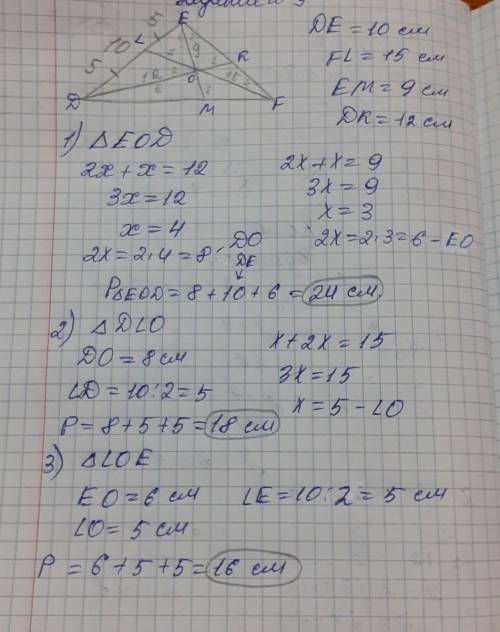 DE = 10 см
FL = 15 см
EM = 9 см
DK = 12 см
E
5
L
10
5
9
K
O
12
15
D
M
F
1) △EOD
2x + x = 12
3x = 12
x = 4
2x = 2·4 = 8 · DO
DE
2x + x = 9
3x = 9
x = 3
2x = 2·3 = 6 – EO
P△EOD = 8 + 10 + 6 = 24 см
2) △DLO
DO = 8 см
LD = 10 : 2 = 5
x + 2x = 15
3x = 15
x = 5 – LO
P = 8 + 5 + 5 = 18 см
3) △LOE
EO = 6 см
LE = 10 : 2 = 5 см
LO = 5 см
P = 6 + 5 + 5 = 16 см